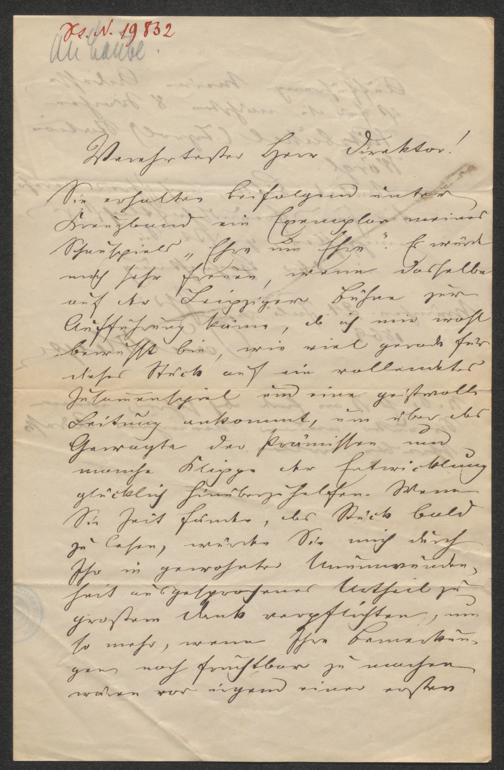 Hs. N. 19832
An Laube.
Verehrtester Herr Direktor!
Sie erhalten beifolgend unter
Kreuzband ein Exemplar meines
Schauspiels „Ehre um Ehre". Es würde
mich sehr freuen, wenn dasselbe
auf der Leipziger Bühne zur
Aufführung käme, da ich mir wohl
bewußt bin wie viel gerade für
dieses Stück auf ein vollendetes
Zusammenspiel und eine geistvolle
Leitung ankommt, um über das
Gewagte der Prämissen und
manche Klippe der Entwicklung
glücklich hinüberzuhelfen. Wenn
Sie Zeit fänden, das Stück bald
zu lesen, würden Sie mich durch
Ihr in gewohnter Unumwunden-
heit ausgesprochenes Urtheil zu
großem Dank verpflichten, um
so mehr, wenn Ihre Bemerkun-
gen noch fruchtbar zu machen
wären vor irgend einer ersten